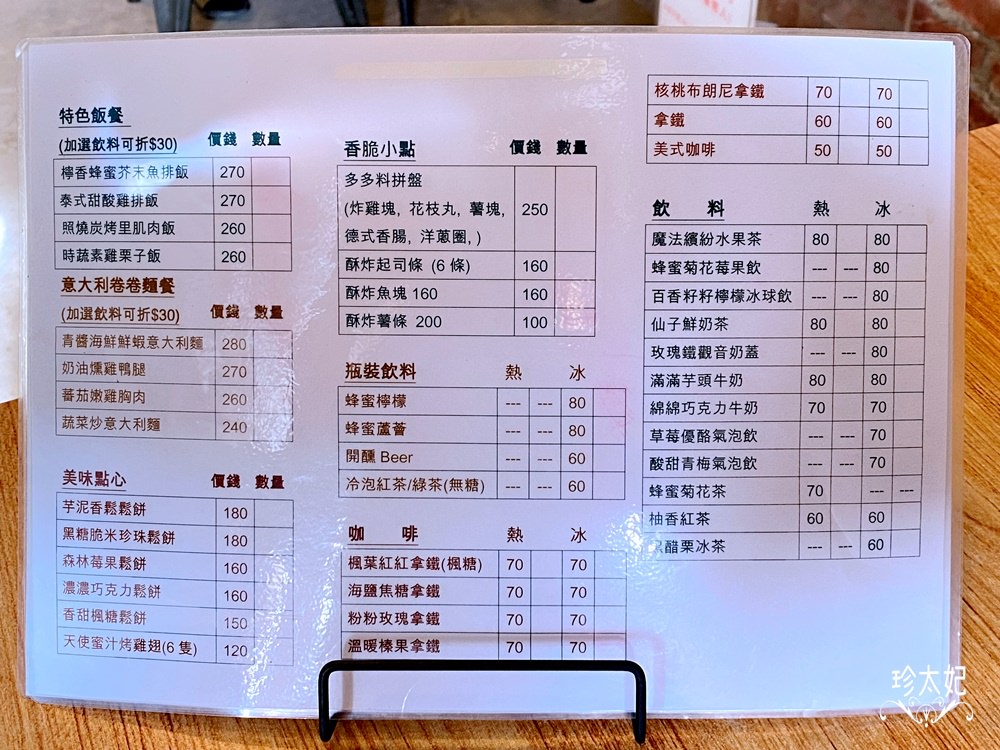 特色飯餐
(加選飲料可折$30) 價錢 數量
檸香蜂蜜芥末魚排飯 270
泰式甜酸雞排飯 270
照燒炭烤里肌肉飯 260
時蔬素雞栗子飯 260
意大利卷卷麵餐
(加選飲料可折$30) 價錢 數量
青醬海鮮鮮蝦意大利麵 280
奶油燻雞鴨腿 270
蕃茄嫩雞胸肉 260
蔬菜炒意大利麵 240
美味點心 價錢 數量
芋泥香鬆鬆餅 180
黑糖脆米珍珠鬆餅 180
森林莓果鬆餅 160
濃濃巧克力鬆餅 160
香甜楓糖鬆餅 150
天使蜜汁烤雞翅(6 隻) 120
香脆小點 價錢 數量
多多料拼盤
(炸雞塊, 花枝丸, 薯塊, 250
德式香腸, 洋蔥圈, )
酥炸起司條 (6 條) 160
酥炸魚塊 160 160
酥炸薯條 200 100
瓶裝飲料 熱 冰
蜂蜜檸檬 --- --- 80
蜂蜜蘆薈 --- --- 80
開醺 Beer --- --- 60
冷泡紅茶/綠茶(無糖) --- --- 60
咖 啡 熱 冰
楓葉紅紅拿鐵(楓糖) 70 70
海鹽焦糖拿鐵 70 70
粉粉玫瑰拿鐵 70 70
溫暖榛果拿鐵 70 70
核桃布朗尼拿鐵 70 70
拿鐵 60 60
美式咖啡 50 50
飲 料 熱 冰
魔法繽紛水果茶 80 80
蜂蜜菊花莓果飲 --- --- 80
百香籽籽檸檬冰球飲 --- --- 80
仙子鮮奶茶 80 80
玫瑰鐵觀音奶蓋 --- --- 80
滿滿芋頭牛奶 80 80
綿綿巧克力牛奶 70 70
草莓優酪氣泡飲 --- --- 70
酸甜青梅氣泡飲 --- --- 70
蜂蜜菊花茶 70 --- ---
柚香紅茶 60 60
醋栗冰茶 --- --- 60
珍太妃